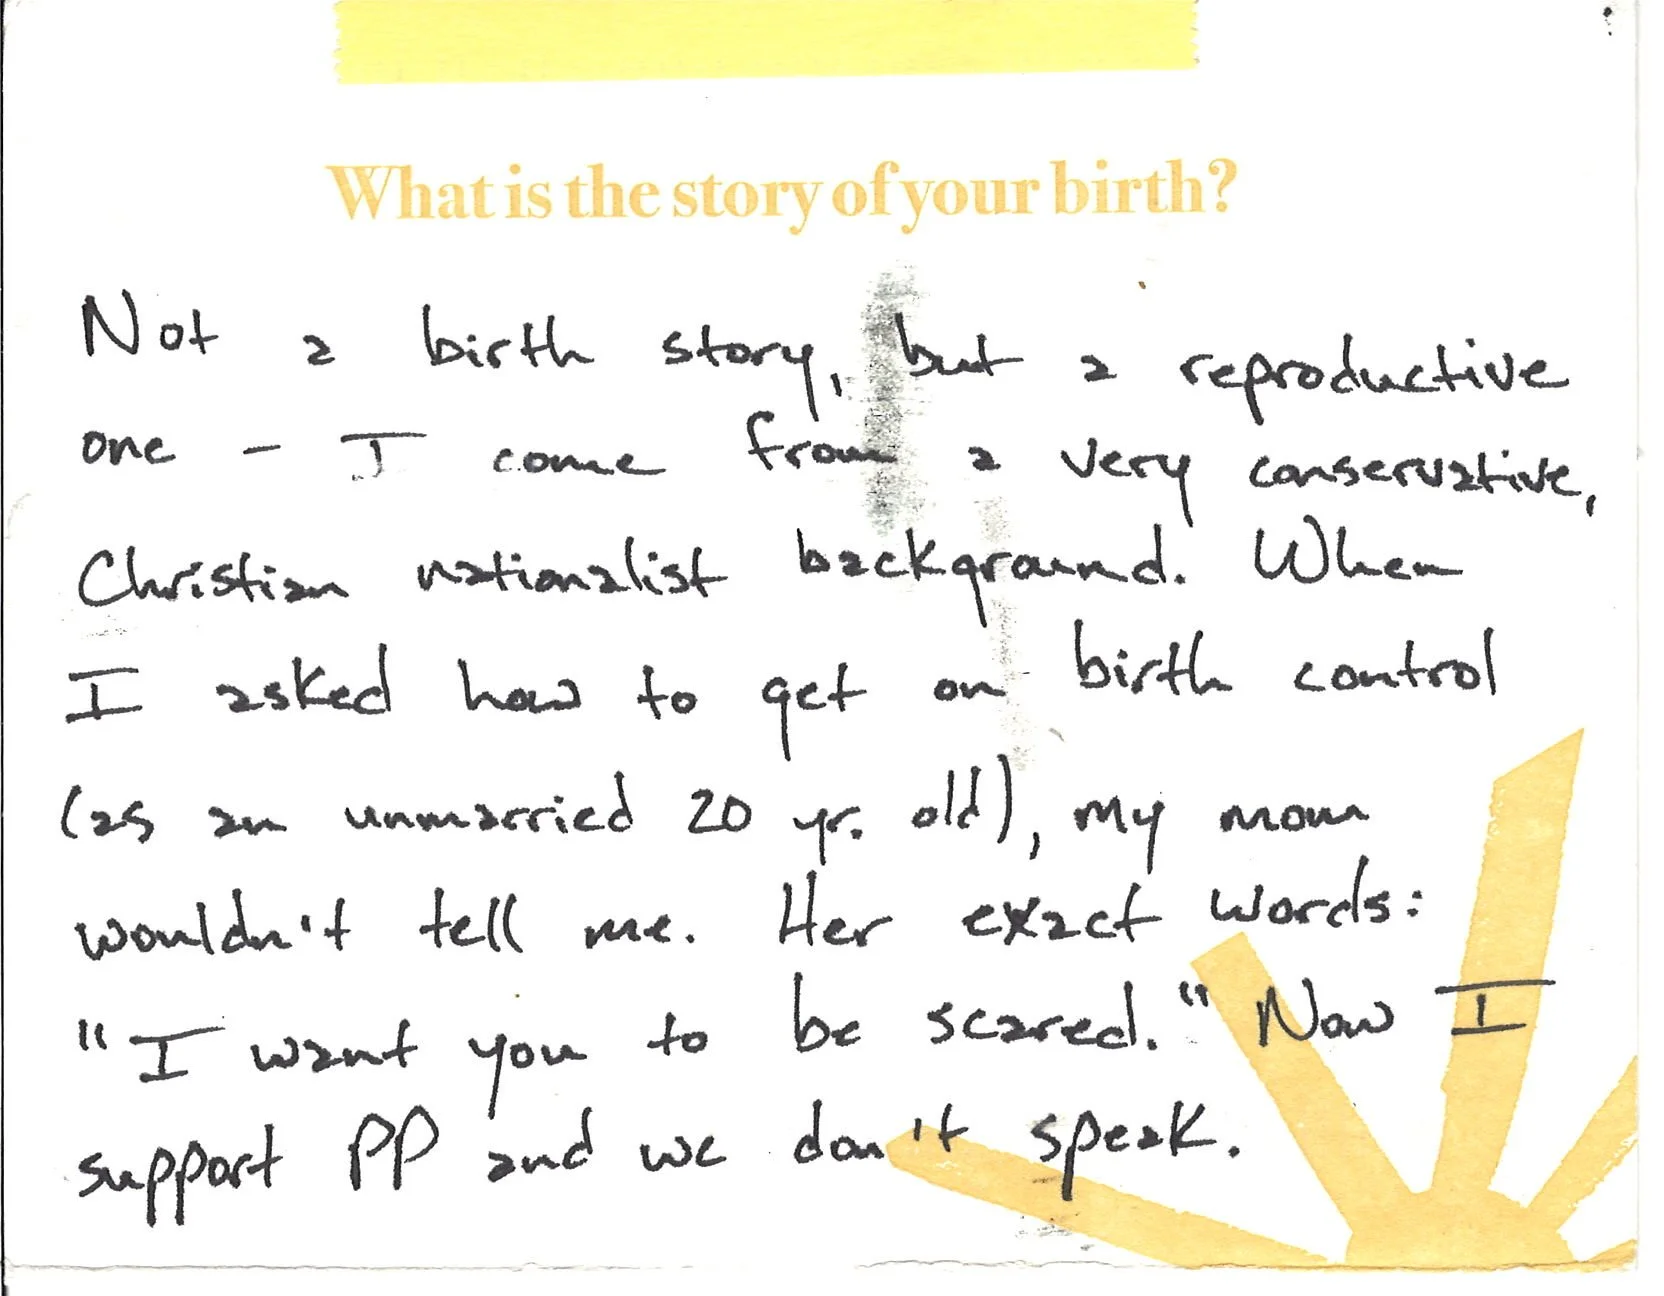 What is the story of your birth?
Not a birth story, but a reproductive
one - I come from a very conservative,
Christian nationalist background. When
I asked how to get on birth control
(as an unmarried 20 yr. old), my mom
wouldn't tell me. Her exact words:
"I want you to be scared." Now I
support PP and we don't speak.